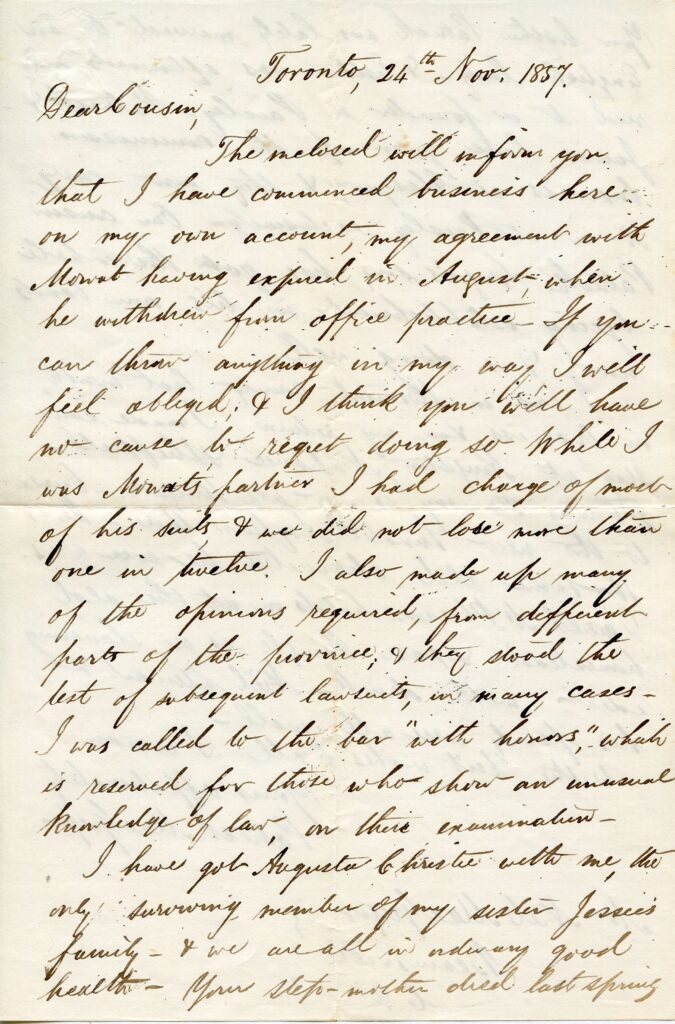 Toronto, 24th Nov. 1857.
Dear Cousin,
The inclosed will inform you
that I have commenced business here
on my own account, my agreement with
Mowat having expired in August, when
he withdrew from office practice - If you
can throw anything in my way I will
feel obliged; & I think you will have
no cause to regret doing so While I
was Mowat's partner I had charge of most
of his suits & we did not lose more than
one in twelve. I also made up many
of the opinions required, from different
parts of the province; & they stood the
test of subsequent lawsuits, in many cases -
I was called to the bar "with honors", which
is reserved for those who show an unusual
knowledge of law, on their examination -
I have got Augusta Christie with me, the
only surviving member of my sister Jessie's
family - & we are all in ordinary good
health - Your step-mother died last spring